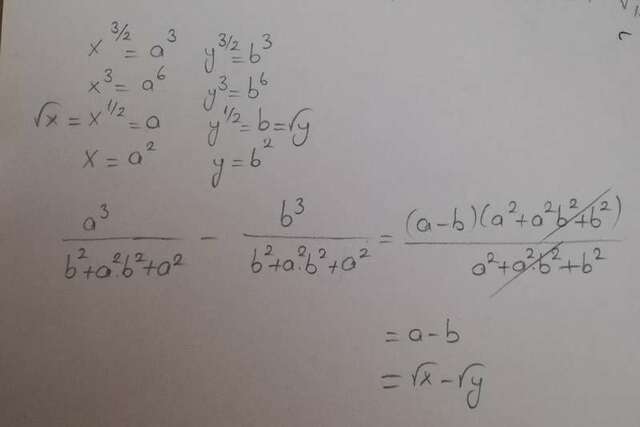 x^{3/2} = a^3   y^{3/2} = b^3
x^3 = a^6   y^3 = b^6
√x = x^{1/2} = a   y^{1/2} = b = √y
x = a^2   y = b^2
a^3/(b^2+a^2.b^2+a^2) - b^3/(b^2+a^2.b^2+a^2) = (a-b)(a^2+a^2b^2+b^2)/(a^2+a^2.b^2+b^2)
= a-b
= √x - √y